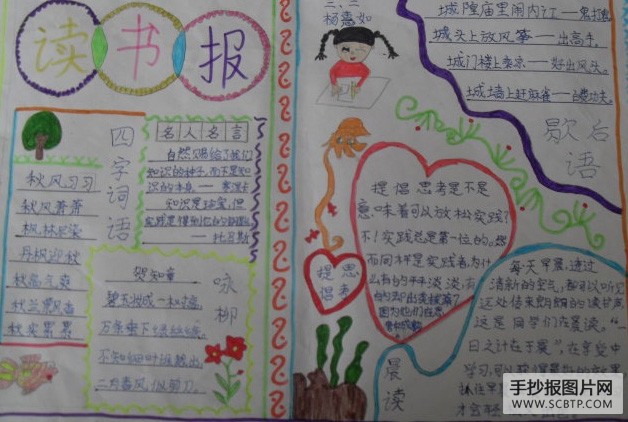 读书报
三、二
杨嘉如
城隍庙里闹内江——鬼打鬼
城头上放风筝——出高手
城门楼上乘凉——好出风头
城墙上赶麻雀——白费功夫
歇后语
四字词语
秋风习习
秋风萧萧
枫林尽染
丹枫迎秋
秋高气爽
秋兰飘香
秋实累累
名人名言
自然赐给了我们
知识的种子,而不是知
识的本身——塞涅卡
知识是珍宝,但
实践是得到它的钥匙
咏柳
贺知章
碧玉妆成一树高,
万条垂下绿丝绦。
不知细叶谁裁出,
二月春风似剪刀。
提倡思考是不是
意味着可以放松实践?
不!实践总是第一位的。然
而同样是实践者为什
么有的平平淡淡,有
的却出类拔萃?
因为他们在思
提倡思考
每天早晨,透过
清新的空气,都可以听见
这处传来朗朗的读书声
这是同学们在晨读。“一
日之计在于晨”,在享受中
学习,可以取得最好的效果
晨读
手抄报图片网
WWW.SCBTP.COM